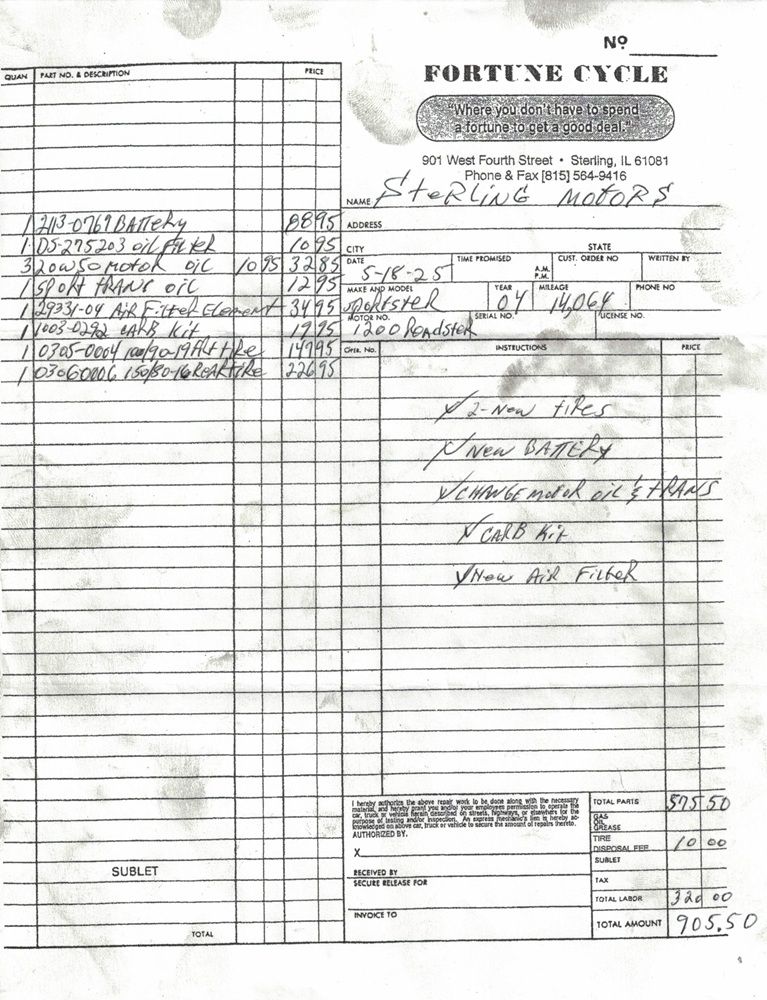 Nº
FORTUNE CYCLE
"Where you don't have to spend
a fortune to get a good deal."
901 West Fourth Street • Sterling, IL 61081
Phone & Fax [815] 564-9416
NAME SteRLiNG MotoRS
ADDRESS
CITY STATE
DATE 5-18-25 TIME PROMISED A.M. P.M. CUST. ORDER NO WRITTEN BY
MAKE AND MODEL SpoRtsteR YEAR 04 MILEAGE 14,064 PHONE NO
MOTOR NO. 1200 RoadsteR SERIAL NO. LICENSE NO.
QUAN PART NO. & DESCRIPTION PRICE
1 2113-0769 BAtteRy 88 95
1 DS-275203 oil FilteR 10 95
3 20W50 MotoR oil 10 95 32 85
1 SpoRt tRANS oil 12 95
1 29331-04 AiR FilteR Element 34 95
1 1003-0292 CARB Kit 19 95
1 0305-0004 100/90-19 FRt tiRe 147 95
1 03060006 150/80-16 ReAR tiRe 226 95
SUBLET
TOTAL
OPER. NO. INSTRUCTIONS PRICE
✓ 2-New tiRes
✓ New BATTERY
✓ CHANGE motoR oil & tRANS
✓ CARB Kit
✓ New AiR FilteR
I hereby authorize the above repair work to be done along with the necessary
material, and hereby grant you and/or your employees permission to operate the
car, truck or vehicle herein described on streets, highways, or elsewhere for the
purpose of testing and/or inspection. An express mechanic's lien is hereby ac-
knowledged on above car, truck or vehicle to secure the amount of repairs thereto.
AUTHORIZED BY.
X
RECEIVED BY
SECURE RELEASE FOR
INVOICE TO
TOTAL PARTS 575 50
GAS
OIL
GREASE
TIRE DISPOSAL FEE 10 00
SUBLET
TAX
TOTAL LABOR 320 00
TOTAL AMOUNT 905.50